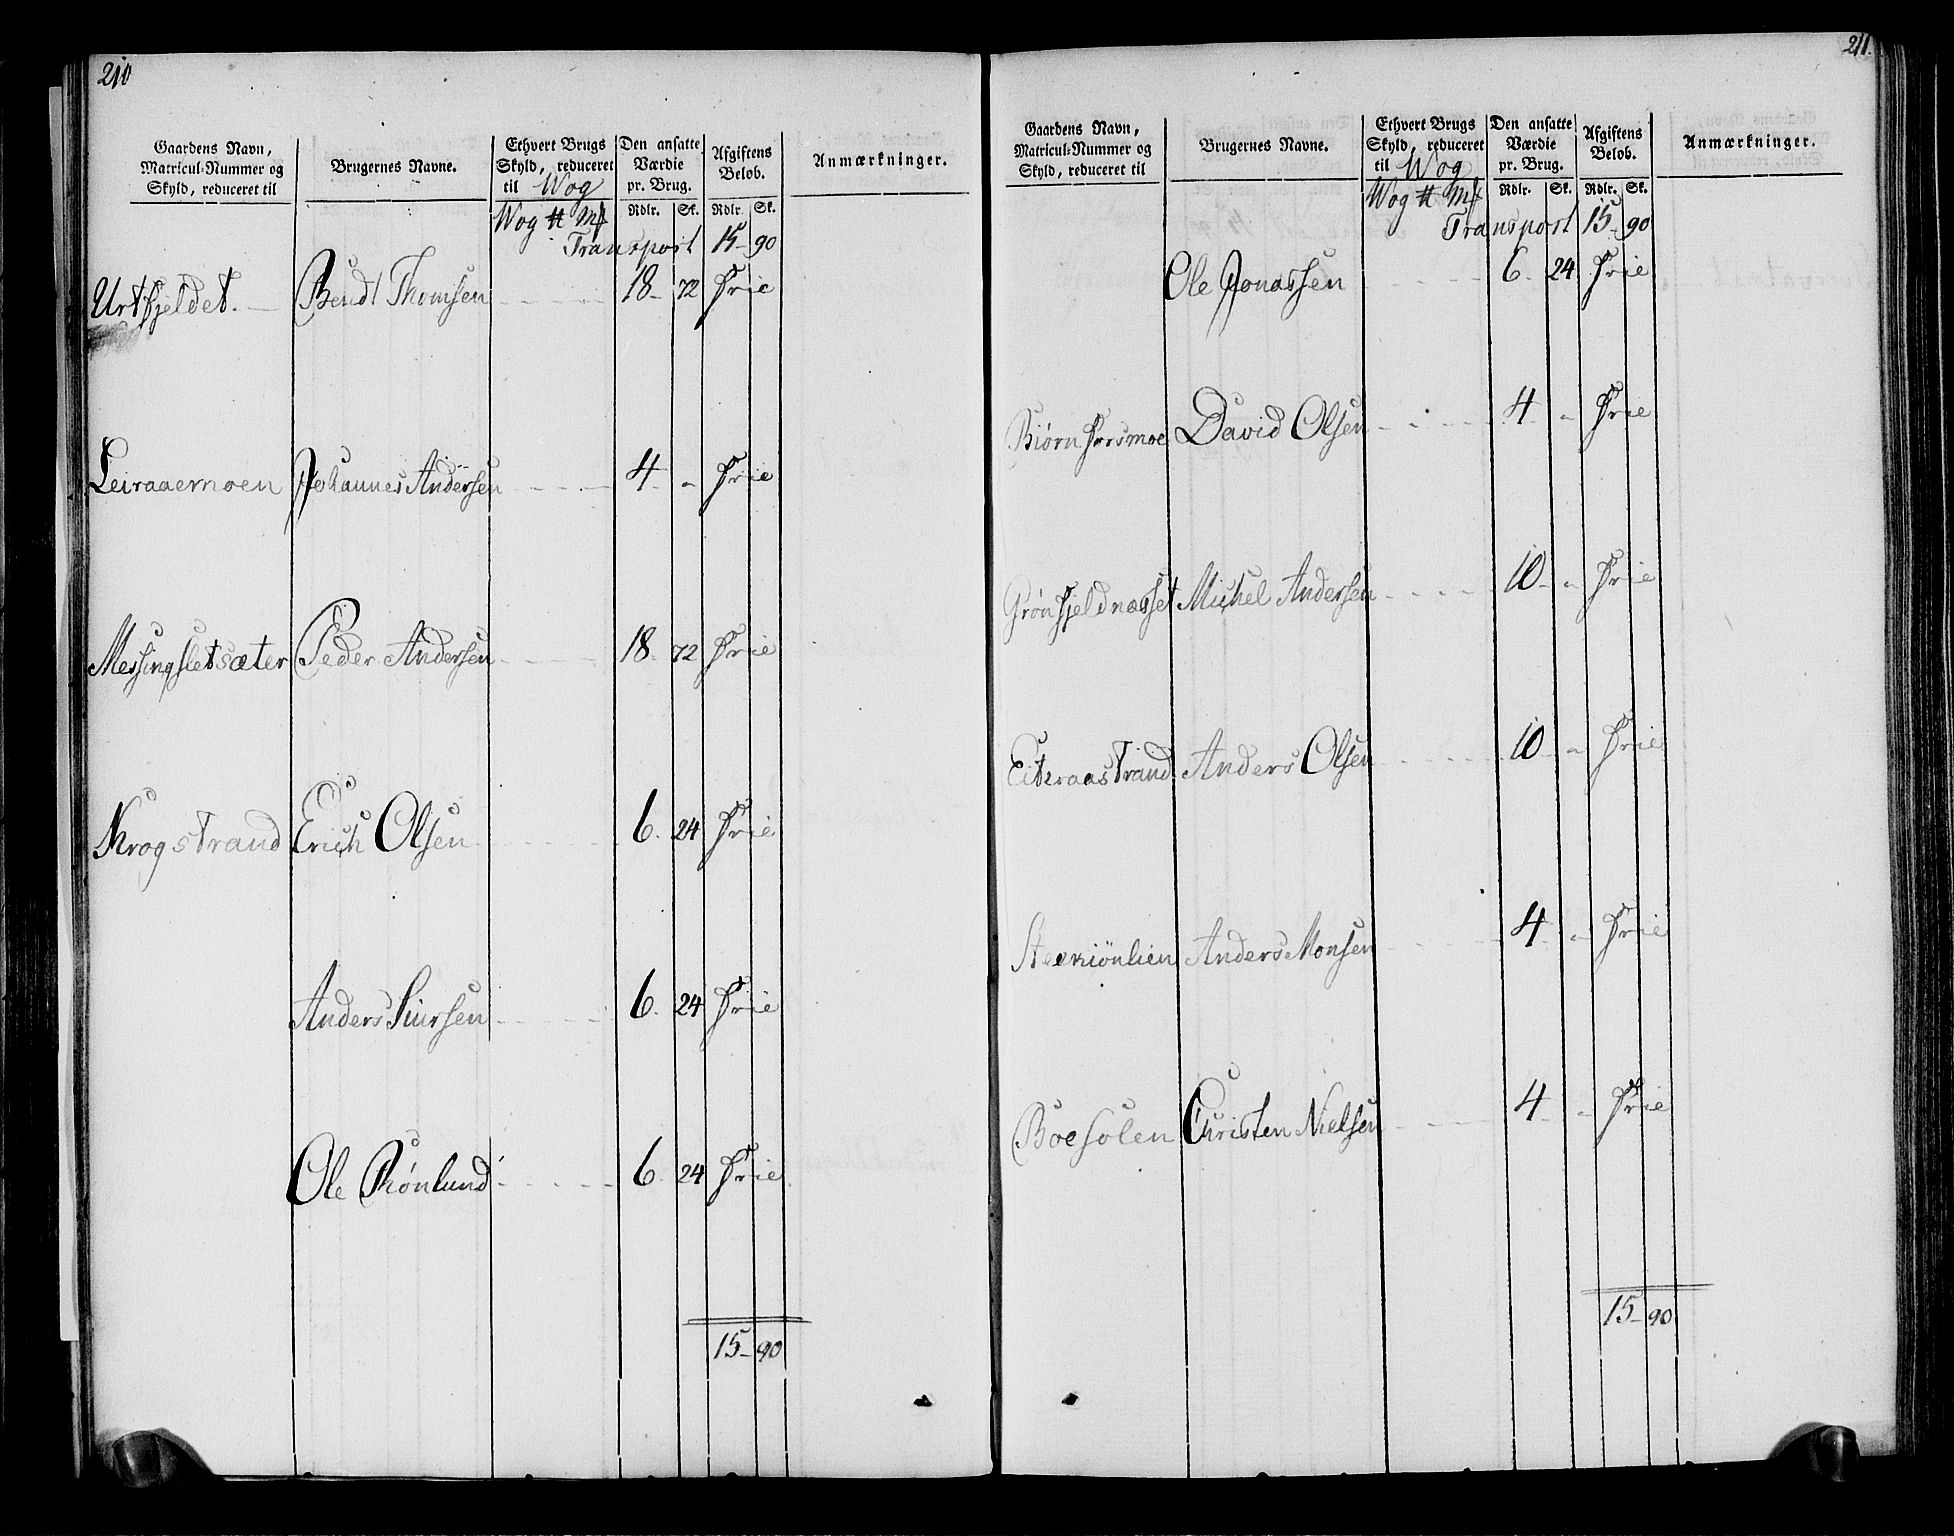 210
Gaardens Navn, Matricul-Nummer og Skyld, reduceret til
Brugernes Navne.
Ethvert Brugs Skyld, reduceret til Wog
Den ansatte Værdie pr. Brug.
Afgiftens Beløb.
Anmærkninger.
Wog ℔ Mk Rdlr. Sk. Rdlr. Sk.
Transport 15 - 90
Urtfjeldet. Bendt Thomsen 18 - 72 Frie
Leiraaemoen Johannes Andersen 4 - " Frie
Messingsletsæter Peder Andersen 18 - 72 Frie
Krogstrand Erich Olsen 6 - 24 Frie
Anders Siursen 6 - 24 Frie
Ole Rønlund 6 - 24 Frie
15 - 90
211.
Gaardens Navn, Matricul-Nummer og Skyld, reduceret til
Brugernes Navne.
Ethvert Brugs Skyld, reduceret til Wog
Den ansatte Værdie pr. Brug.
Afgiftens Beløb.
Anmærkninger.
Wog ℔ Mk Rdlr. Sk. Rdlr. Sk.
Transport 15 - 90
Ole Jonassen 6 - 24 Frie
Biørnforsmoe David Olsen 4 - " Frie
Grønfjeldnæsset Michel Andersen 10 - " Frie
Eiteraastrand Anders Olsen 10 - " Frie
Anders Monsen 4 - " Frie
Boesolen Christen Nielsen 4 - " Frie
15 - 90